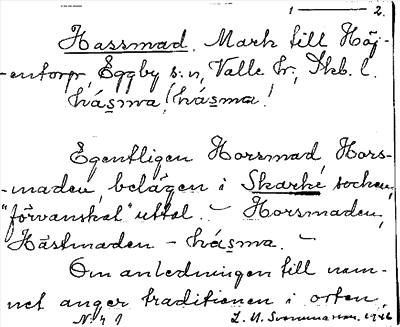 1 — 2.
Hassmad. Mark till Höj-
-entorp, Eggby s:n, Valle hr, Skb. l.
hásma! hásma!
Egentligen Horsmad, Hors-
-maden, belägen i Skarke socken,
"förvanskat" uttal. – Horsmaden,
Hästmaden – hásma. –
Om anledningen till nam-
net anger traditionen i orten,